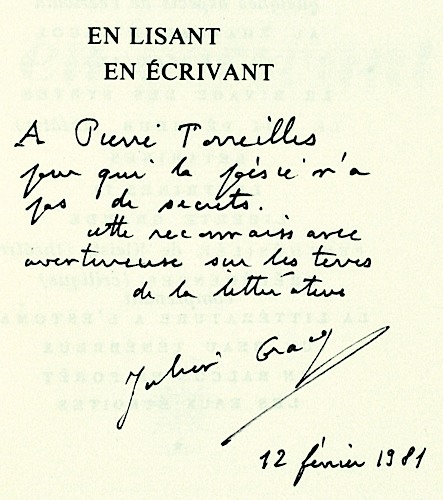 EN LISANT
EN ÉCRIVANT
A Pierre Torreilles
pour qui la poésie n'a
pas de secrets.
cette reconnaissance
aventureuse sur les terres
de la littérature
Julien Gracq
12 février 1981